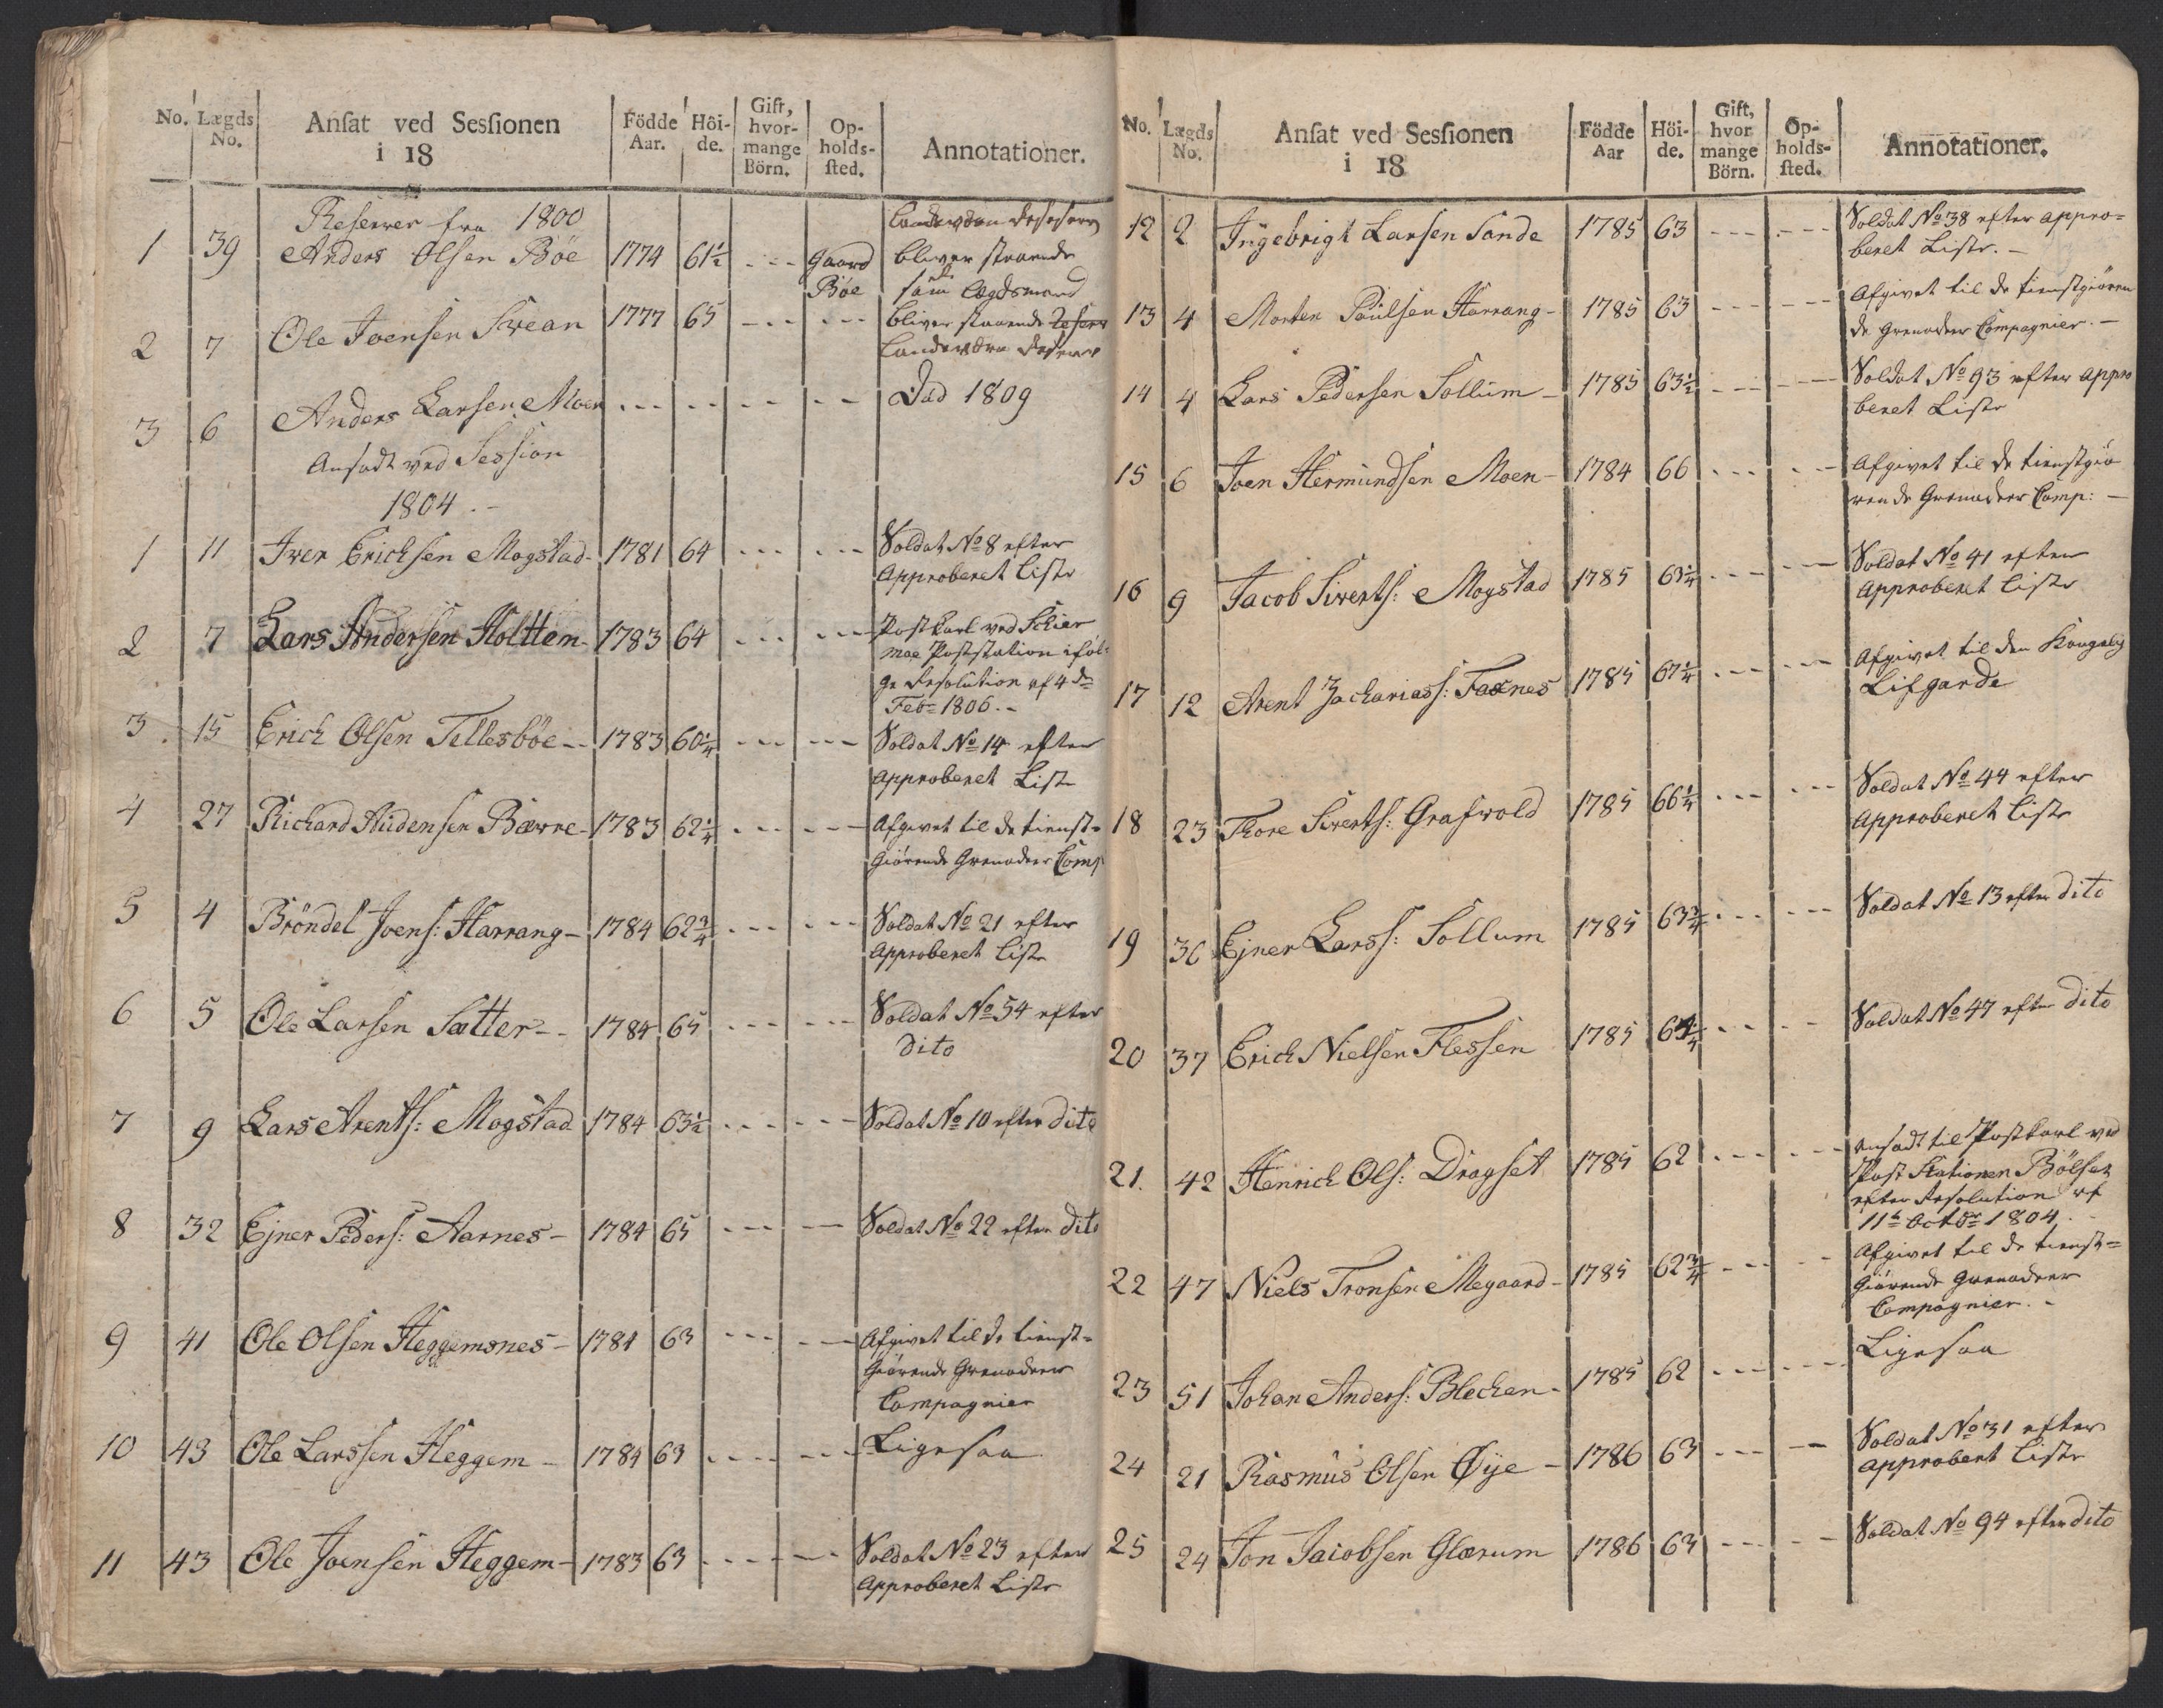 No. Lægds No. Ansat ved Sessionen i 18 Födde Aar. Höi-de. Gift, hvor-mange Börn. Op-holds-sted. Annotationer.
Reserver fra 1800
1 39 Anders Olsen Böe 1774 61½ --- Gaard Böe
bliver staaende
som Lægdsmand
2 7 Ole Joensen Swean 1777 65 --- ---
bliver staaende
Landeværn Reserve
3 6 Anders Larsen Moen --- --- --- --- Död 1809
Ansadt ved Session
1804.-
1 11 Iver Erichsen Mogstad- 1781 64 --- --- Soldat No 8 efter
Approberet Liste
2 7 Lars Andersen Holttem- 1783 64 --- --- Postkarl ved Schier
moe Poststation iföl-
ge Resolution af 4de
Febr 1806.-
3 15 Erich Olsen Tellesböe-- 1783 60¼ --- --- Soldat No 14 efter
Approberet Liste
4 27 Richard Audensen Bæwre- 1783 62¼ --- --- Afgivet til de tienst-
giörende Grenadeer Comp
5 4 Bröndel Joens: Harrang- 1784 62¾ --- --- Soldat No 21 efter
Approberet Liste
6 5 Ole Larsen Sætter-- 1784 65 --- --- Soldat No 54 efter
dito
7 9 Lars Arents: Mogstad 1784 63½ --- --- Soldat No 10 efter dito
8 32 Ejner Peders: Aarnes- 1784 65 --- --- Soldat No 22 efter dito
9 41 Ole Olsen Heggemsnes- 1784 63 --- --- Afgivet til de tienst-
giörende Grenadeer
Compagnier
10 43 Ole Larssen Heggem- 1784 63 --- --- Ligesaa
11 43 Ole Joensen Heggem- 1783 63 --- --- Soldat No 23 efter
Approberet Liste
No. Lægds No. Ansat ved Sessionen i 18 Födde Aar Höi-de. Gift, hvor mange Börn. Op-holds-sted. Annotationer.
12 2 Ingebrigt Larsen Sande 1785 63 --- --- Soldat No 38 efter appro-
beret Liste.-
13 4 Morten Paulsen Harrang- 1785 63 --- --- Afgivet til de tienstgiören
de Grenadeer Compagnier.-
14 4 Lars Pedersen Sollum- 1785 63½ --- --- Soldat No 93 efter appro
beret Liste
15 6 Joen Hermundsen Moen- 1784 66 --- --- Afgivet til de tienstgiö
rende Grenadeer Comp:-
16 9 Jacob Siverts: Mogstad 1785 63¼ --- --- Soldat No 41 efter
Approberet Liste
17 12 Arent Zacharias: Faxnes 1785 67¼ --- --- Afgivet til den Kongelig
Lifgarde
18 23 Thore Siverts: Grafwold 1785 66¼ --- --- Soldat No 44 efter
Approberet Liste
19 36 Ejner Larss: Sollum 1785 63¾ --- --- Soldat No 13 efter dito
20 37 Erich Nielsen Flessen 1785 64¼ --- --- Soldat No 47 efter dito
21. 42 Henrich Ols: Dragset 1785 62 --- --- Ansadt til Postkarl ved
Post Stationen Bölset
efter Resolution af
11te Octbr 1804.
22 47 Niels Tronsen Megaard- 1785 62¾ --- --- Afgivet til de tienst-
giörende Grenadeer
Compagnier.-
23 51 Johan Anders: Blechen- 1785 62 --- --- Ligesaa
24 21 Rasmus Olsen Øye- 1786 63 --- --- Soldat No 31 efter
approbert Liste
25 24 Jon Jacobsen Glærum 1786 63 --- --- Soldat No 94 efter dito